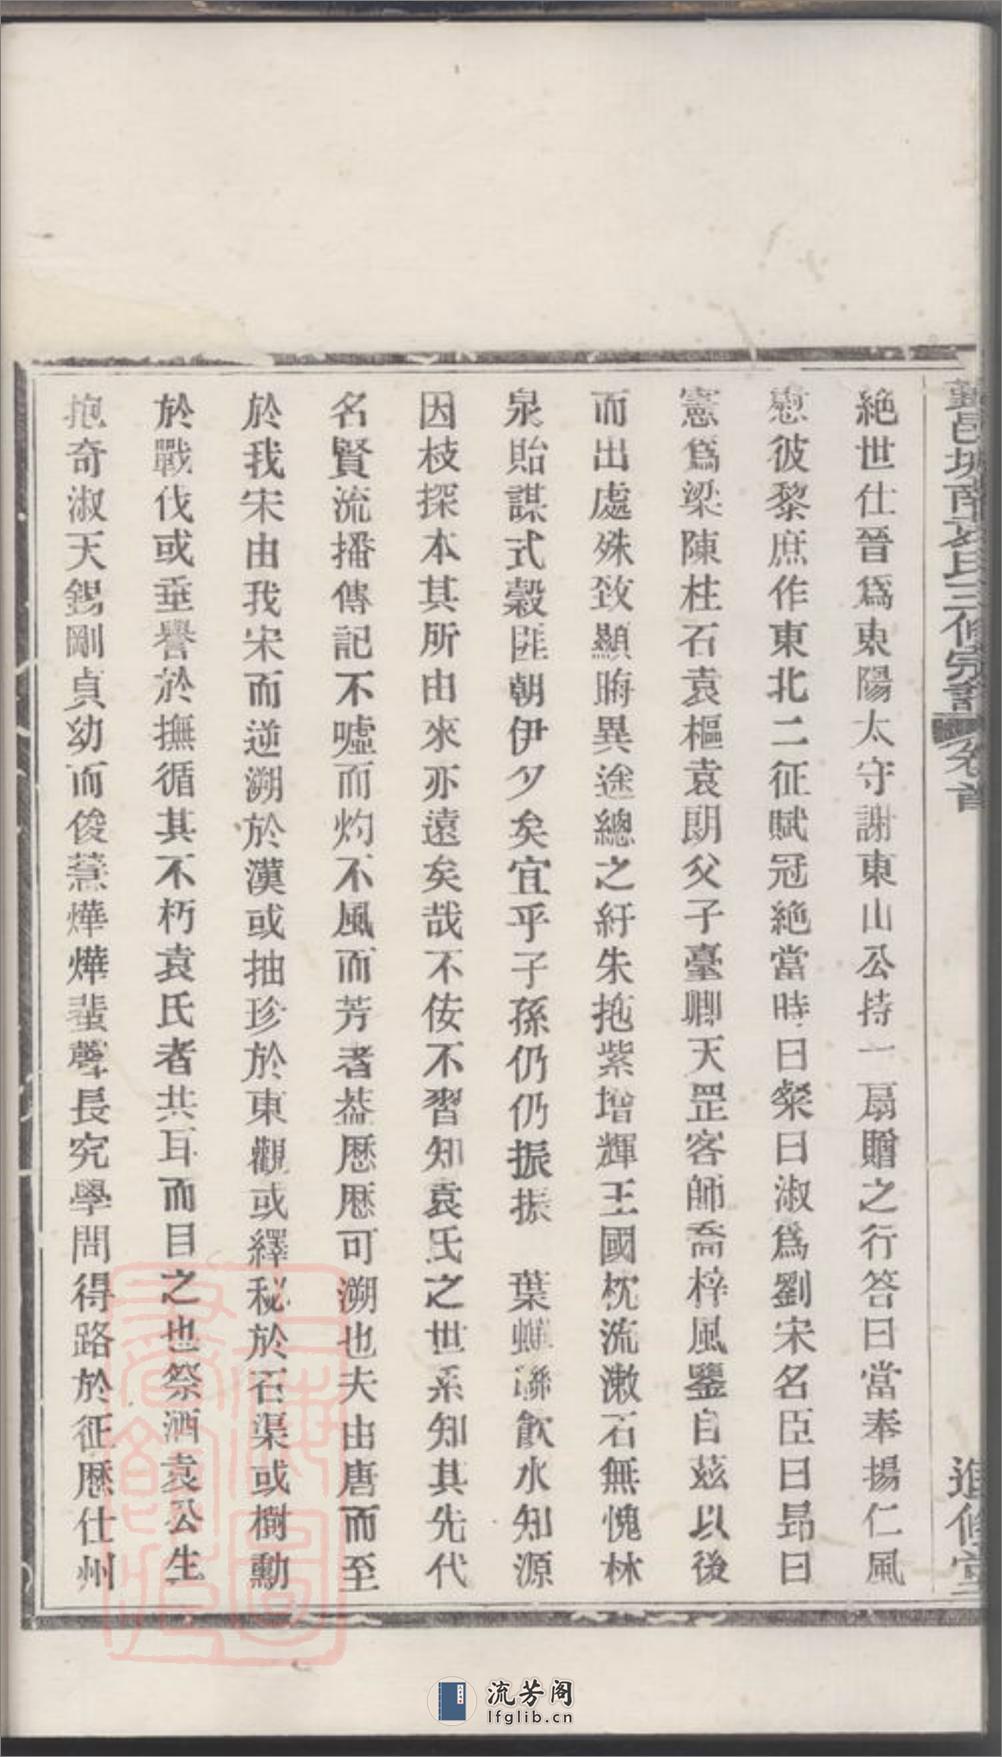 邑城南袁氏三修宗譜 卷首 進修堂
絶世仕晉爲東陽太守謝東山公持一扇贈之行答曰當奉揚仁風
慰彼黎庶作東北二征賦冠絶當時曰粲曰淑爲劉宋名臣曰昂曰
憲爲梁陳柱石袁樞袁朗父子臺卿天罡客師喬梓風鑒自茲以後
而出處殊致顯晦異途總之紆朱拖紫增輝王國枕流漱石無愧林
泉貽謀式穀匪朝伊夕矣宜乎子孫仍仍振振 葉蟬聯飲水知源
因枝探本其所由來亦遠矣哉不佞不習知袁氏之世系知其先代
名賢流播傳記不噓而灼不風而芳者葢歷歷可溯也夫由唐而至
於我宋由我宋而逆溯於漢或抽珍於東觀或繹秘於石渠或樹勳
於戰伐或垂譽於撫循其不朽袁氏者共耳而目之也祭酒袁公生
抱奇淑天錫剛貞幼而俊慧燁燁蜚聲長究學問得路於征歷仕州
上海圖書館藏
流芳阁
lfglib.cn